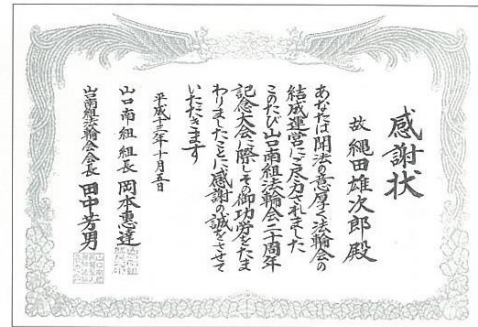 感謝状
故 縄田雄次郎 殿
あなたは聞法の意厚く法輪会の
結成運営にご尽力されました
このたび山口南組法輪会二十周年
記念大会に際しその御功労をたま
わりましたことに感謝の誠をさせて
いただきます
平成十三年十月五日
山口南組 組長 岡本惠達
山口南組法輪会会長 田中芳男